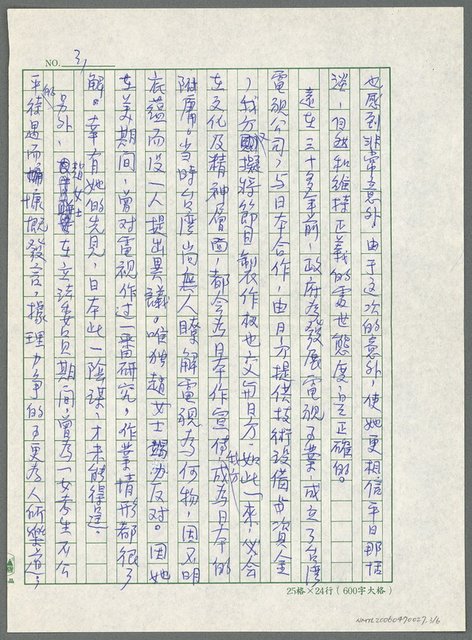 NO. 3,
也感到非常意外,由于这次的意外,使她更相信平日那恬
淡,自然和維持正義的處世態度,是正確的。
遠在三十多年前,政府為發展電視事業,成立了台灣
電視公司,与日本合作,由日方提供技術設備与資金
,我方擬將節目製作权也交与日方,如此一來,必会
在文化及精神層面,都会為日本作宣傳,我方成為日本的
附庸。当時台湾尚無人瞭解電視為何物,因不明
底蘊而没一人提出異議。唯独趙女士竭力反对。因她
在美期间,曾对電視作过一番研究,作業情形都很了
解。幸有她的先見,日本此一陰謀,才未能得逞。
另外,趙女士在立法委員期间,曾為一女考生不公
平的待遇而慷慨發言,據理力争的事更為人所樂道,
25格×24行(600字大格)